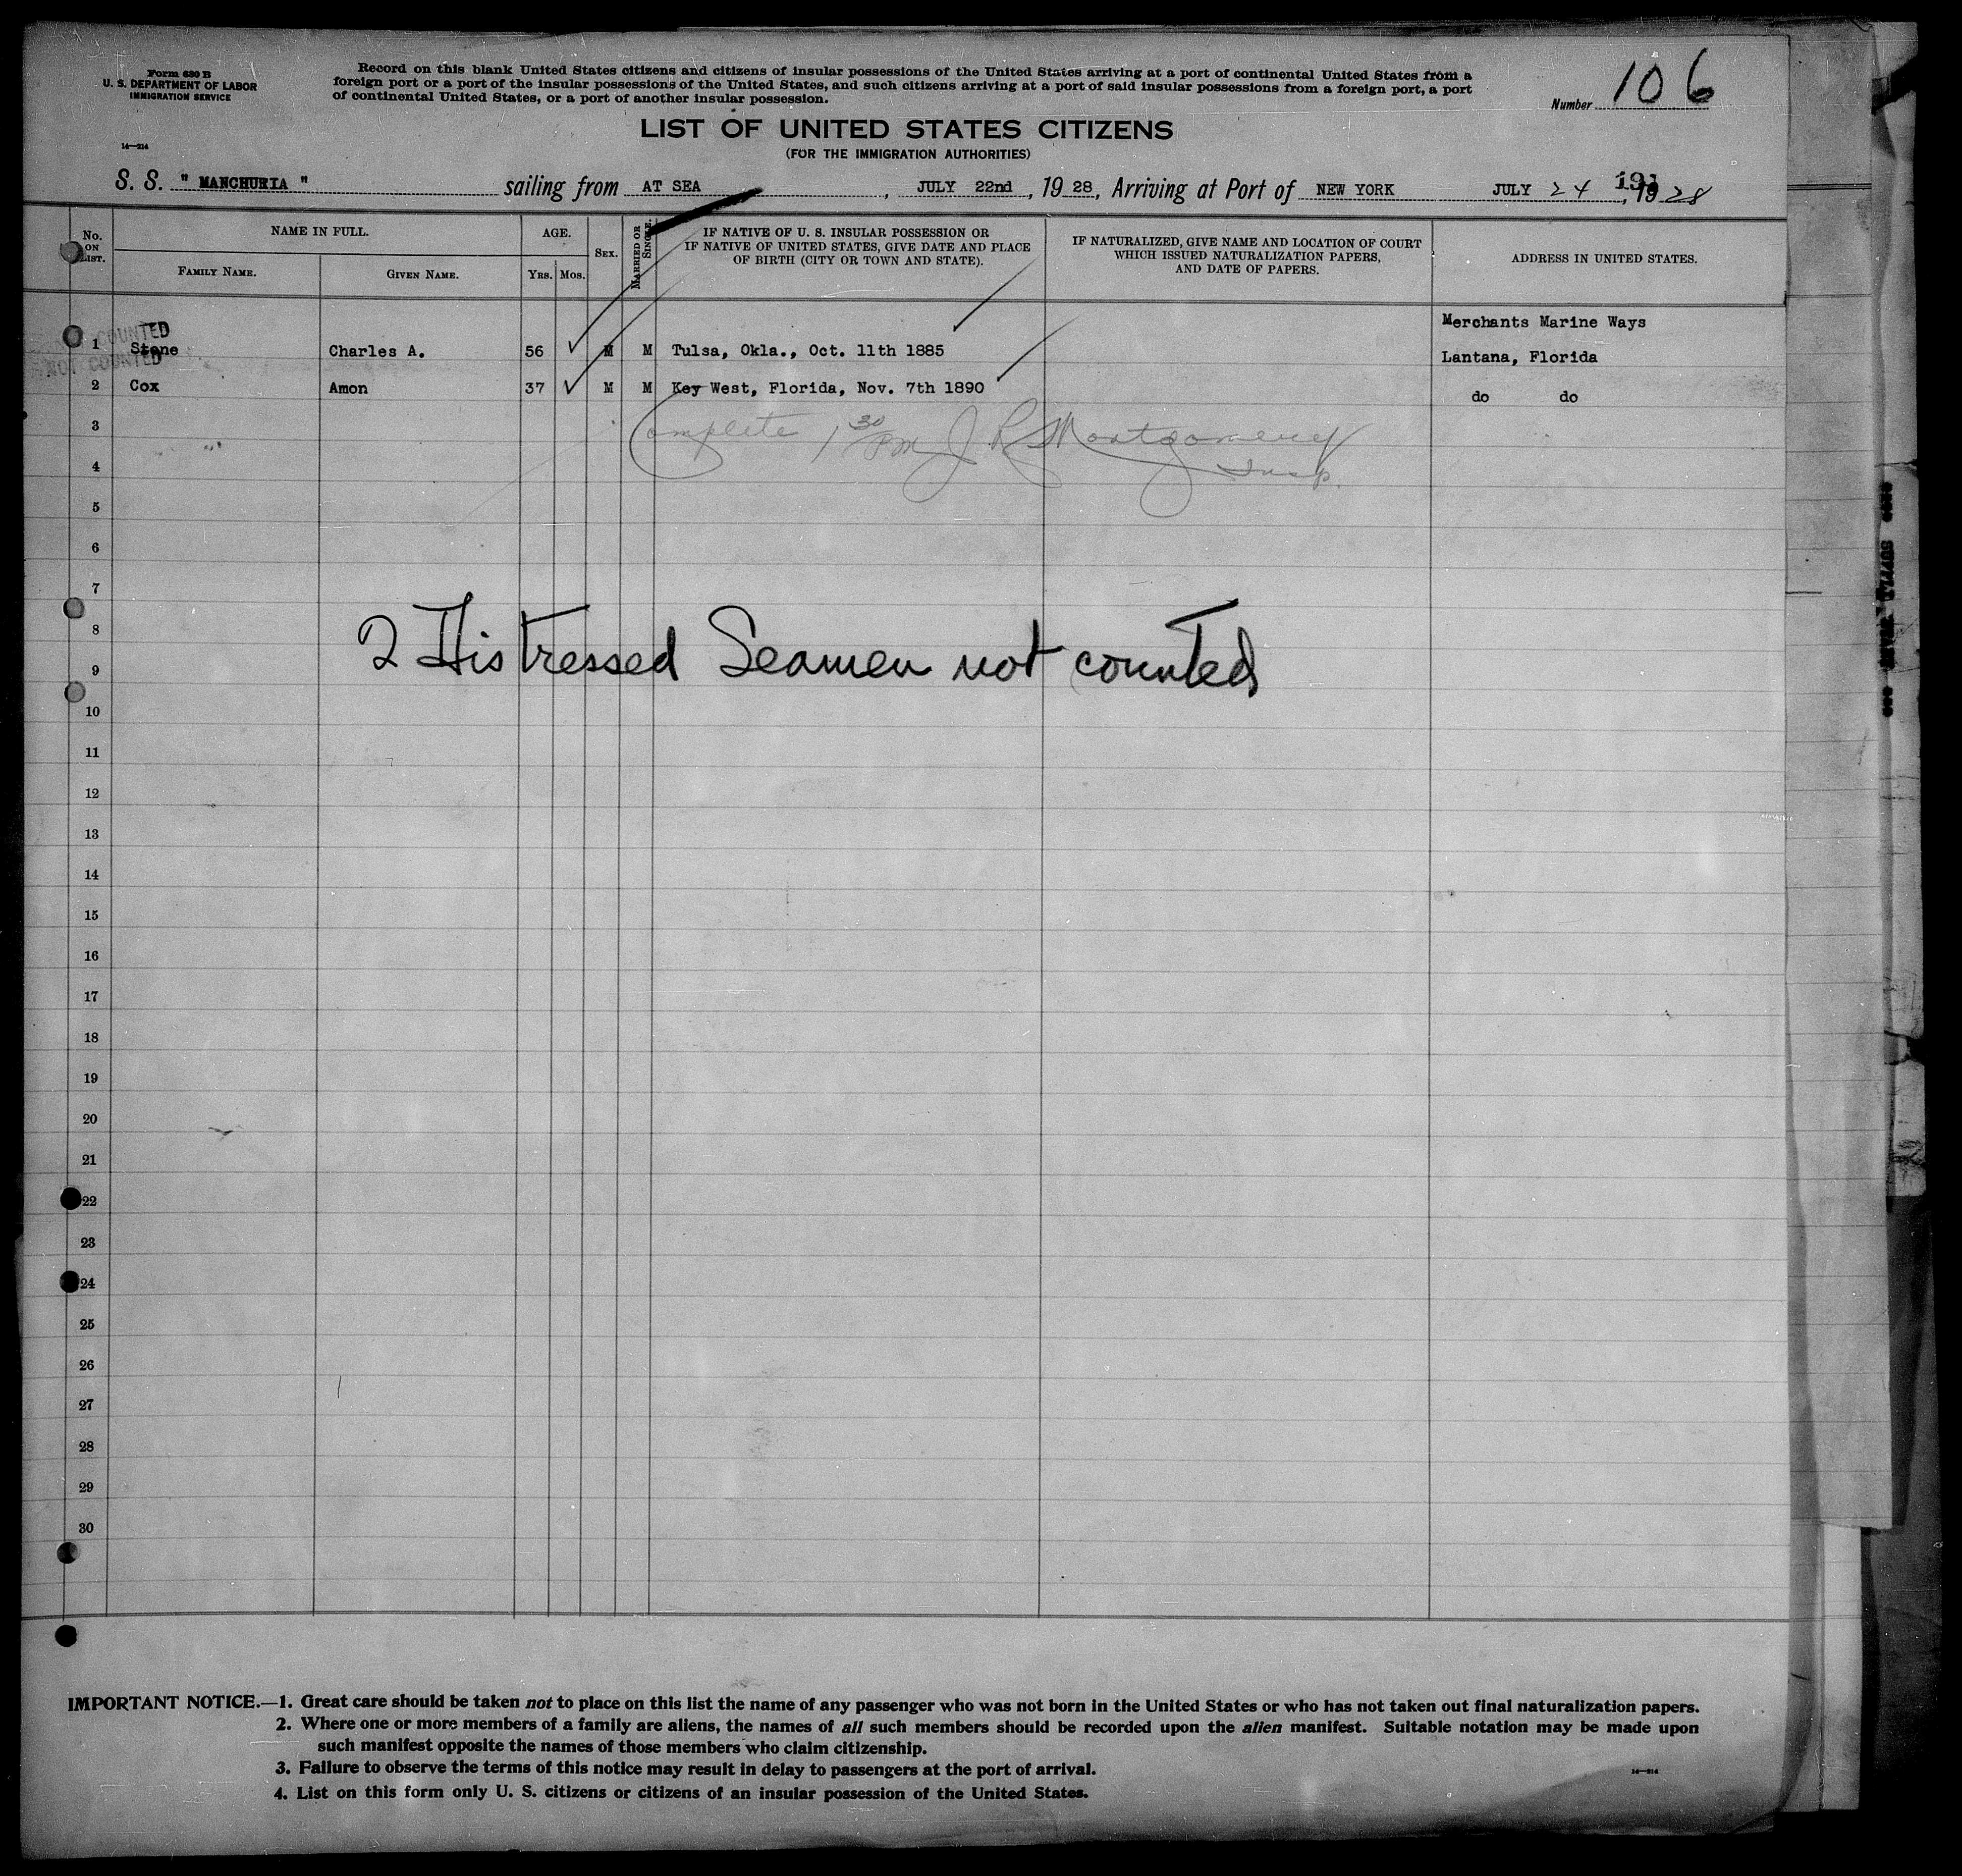 Form 630 B
U. S. DEPARTMENT OF LABOR
IMMIGRATION SERVICE
14—214
Record on this blank United States citizens and citizens of insular possessions of the United States arriving at a port of continental United States from a
foreign port or a port of the insular possessions of the United States, and such citizens arriving at a port of said insular possessions from a foreign port, a port
of continental United States, or a port of another insular possession.
Number 106
LIST OF UNITED STATES CITIZENS
(FOR THE IMMIGRATION AUTHORITIES)
S. S. " MANCHURIA " sailing from AT SEA, JULY 22nd, 19 28, Arriving at Port of NEW YORK JULY 24, 1928
No. ON LIST.
NAME IN FULL.
FAMILY NAME. GIVEN NAME.
AGE.
YRS. MOS.
SEX.
MARRIED OR SINGLE.
IF NATIVE OF U. S. INSULAR POSSESSION OR
IF NATIVE OF UNITED STATES, GIVE DATE AND PLACE
OF BIRTH (CITY OR TOWN AND STATE).
IF NATURALIZED, GIVE NAME AND LOCATION OF COURT
WHICH ISSUED NATURALIZATION PAPERS,
AND DATE OF PAPERS.
ADDRESS IN UNITED STATES.
COUNTED
NOT COUNTED
Merchants Marine Ways
1 Stone Charles A. 56 M M Tulsa, Okla., Oct. 11th 1885 Lantana, Florida
2 Cox Amon 37 M M Key West, Florida, Nov. 7th 1890 do do
Complete 1 30 PM J. R. Montgomery
Insp.
3
4
5
6
7
8
2 Distressed Seamen not counted
9
10
11
12
13
14
15
16
17
18
19
20
21
22
23
24
25
26
27
28
29
30
IMPORTANT NOTICE.—1. Great care should be taken not to place on this list the name of any passenger who was not born in the United States or who has not taken out final naturalization papers.
2. Where one or more members of a family are aliens, the names of all such members should be recorded upon the alien manifest. Suitable notation may be made upon
such manifest opposite the names of those members who claim citizenship.
3. Failure to observe the terms of this notice may result in delay to passengers at the port of arrival.
4. List on this form only U. S. citizens or citizens of an insular possession of the United States.
14—214